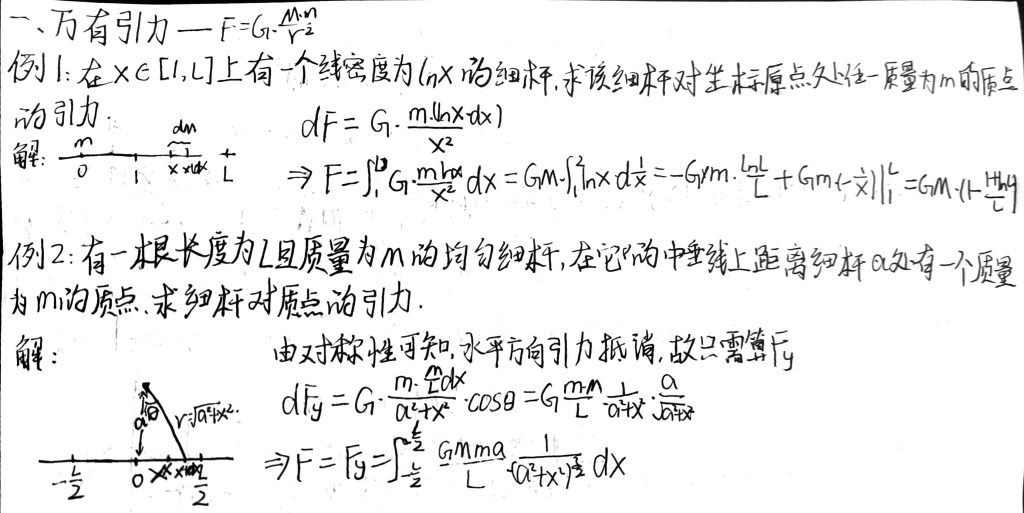 一、万有引力 — F=G·\frac{M·m}{r^2}
例1:在x∈[1,L]上有一个线密度为lnx的细杆,求该细杆对坐标原点处任一质量为m的质点
的引力.
dF = G·\frac{m·(lnx·dx)}{x^2}
解: m dm 0 1 x x+dx L
⇒ F=∫_1^L G·\frac{m lnx}{x^2} dx = GM·∫_1^2 lnx d\frac{1}{x} = -Gm·\frac{lnL}{L} + Gm(-\frac{1}{x})|_1^L = GM·(1-\frac{1+lnL}{L})
例2:有一根长度为L且质量为M的均匀细杆,在它的中垂线上距离细杆a处有一个质量
为m的质点,求细杆对质点的引力.
解: 由对称性可知,水平方向引力抵消,故只需算Fy
dFy = G·\frac{m·\frac{M}{L}dx}{a^2+x^2}·cosθ = G\frac{m·M}{L}·\frac{1}{a^2+x^2}·\frac{a}{\sqrt{a^2+x^2}}
a θ r=\sqrt{a^2+x^2}
⇒ F = Fy = ∫_{-\frac{L}{2}}^{\frac{L}{2}} \frac{GMma}{L}·\frac{1}{(a^2+x^2)^{\frac{3}{2}}} dx
-\frac{L}{2} 0 x x+dx \frac{L}{2}